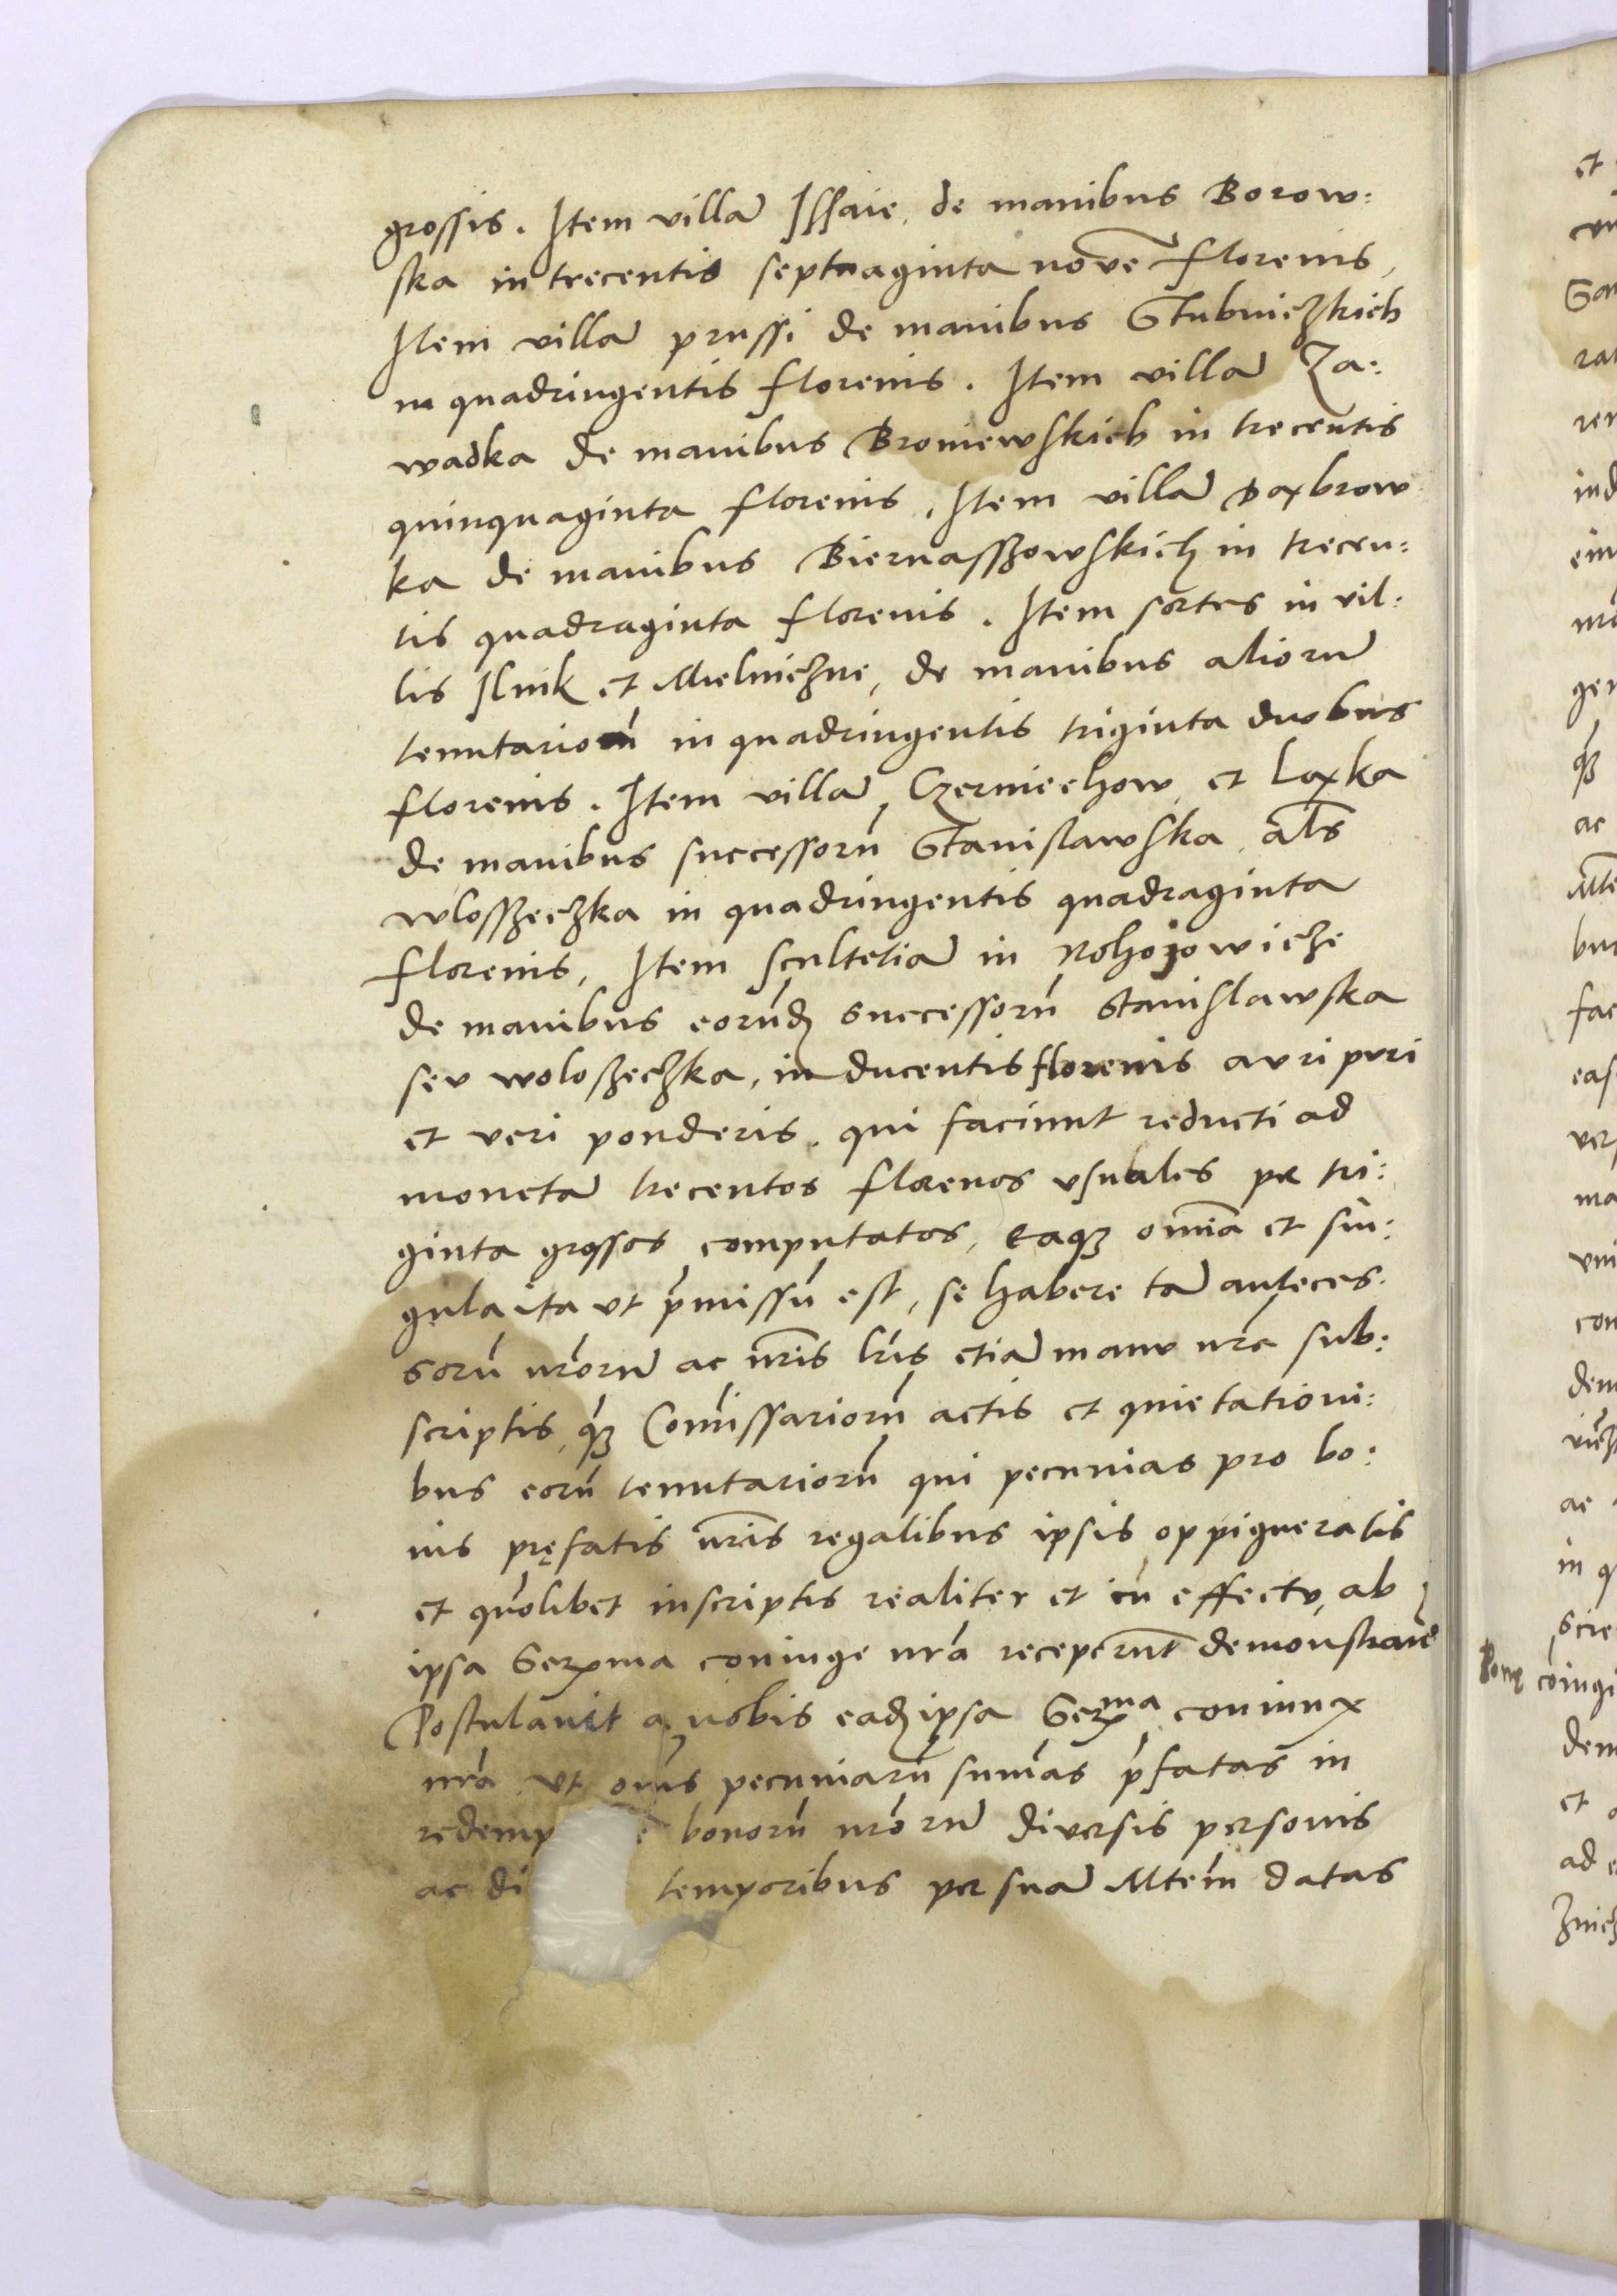 grossis. Item villā Issaie, de manibus Borow:
ska in trecentis septuaginta novē florenis,
Item villā prussi de manibus Stubniczkich
in quadringentis florenis. Item villā Za:
wadka de manibus Broniewskich in trecentis
quinquaginta florenis, Item villā Daxbrow
ka de manibus Biernasszowskich in trecen:
tis quadraginta florenis. Item sortes in vil:
lis Ilnik et Mielniczne, de manibus aliorū
tenutariorū in quadringentis triginta duobus
florenis. Item villā Czerniechow, et Laxka
de manibus successorū Stanislawska, als
wlosszeczka in quadringentis quadraginta
florenis, Item scultetiā in Rohozowicze
de manibus eorūdɜ successorū Stanislawska
seu woloszeczka, in ducentis florenis auri puri
et veri ponderis, qui faciunt reducti ad
monetā trecentos florenos usuales per tri:
ginta grossos computatos, eaqɜ om̄ia et sin:
gula ita ut p̄missū est, se habere tā anteces:
sorū nr̄orū ac nr̄is lr̄is etiā manu nr̄a sub:
scriptis, qɜ Com̄issariorū actis et quietationi:
bus eorū tenutariorū qui pecunias pro bo:
nis pręfatis nr̄is regalibus ipsis oppigneratis
et quōlibet inscriptis realiter et cū effectu, ab
ipsa Serma coniuge nr̄a receperūt demonstrare
Postulavit a nobis eadɜ ipsa Serma coniunx
nr̄a ut om̄s pecuniarū sum̄as p̄fatas in
redemp e bonorū nr̄orū diversis personis
ac di temporibus per suā Mtem̄ datas
et
Ser
ra
rer
ind
ein
ger
qɜ
ac
Mte
bu
fac
eas
ver
ma
uni
con
dem
ac
in q
scre
Bonę coiugi
dem
et
ad